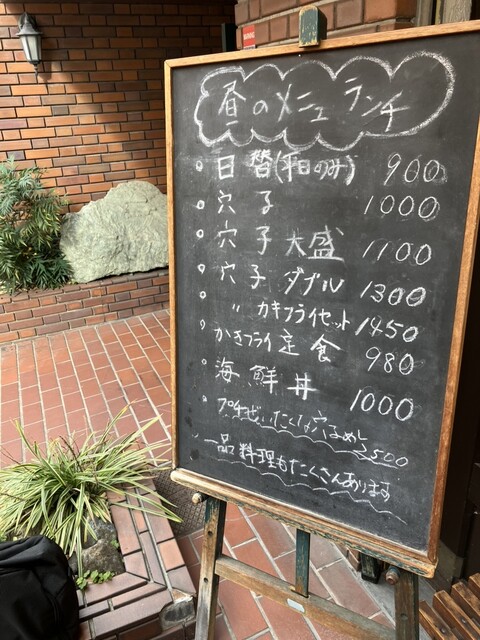 昼のメニュー ランチ
○ 日替(平日のみ) 900
○ 穴子 1000
○ 穴子 大盛 1100
○ 穴子 ダブル 1300
○ 〃 カキフライセット 1450
○ かきフライ定食 980
○ 海鮮丼 1000
○ プチぜいたくな穴子めし 2500
一品料理もたくさんあります